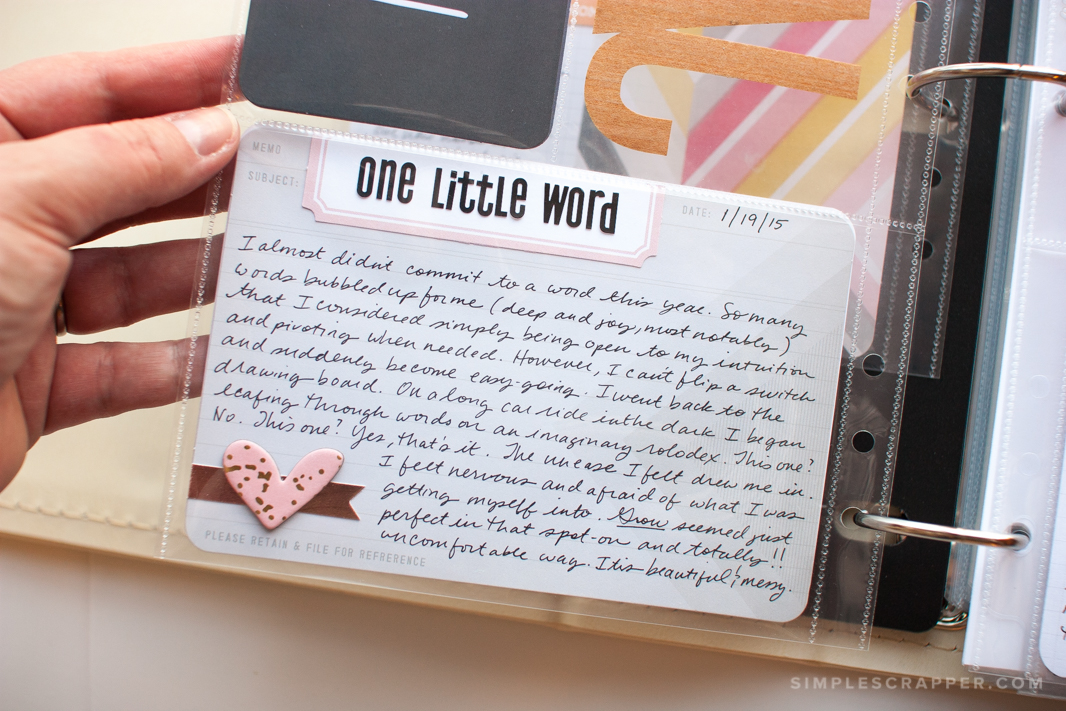 MEMO
SUBJECT:
one little word
DATE: 1/19/15
I almost didn't commit to a word this year. So many
words bubbled up for me (deep and joy, most notably)
that I considered simply being open to my intuition
and pivoting when needed. However, I can't flip a switch
and suddenly become easy-going. I went back to the
drawing board. On a long car ride in the dark I began
leafing through words on an imaginary rolodex. This one?
No. This one? Yes, that's it. The unease I felt drew me in.
I felt nervous and afraid of what I was
getting myself into. Grow seemed just
perfect in that spot-on and totally!!
uncomfortable way. It is beautiful & messy.
PLEASE RETAIN & FILE FOR REFRERENCE
SIMPLESCRAPPER.COM